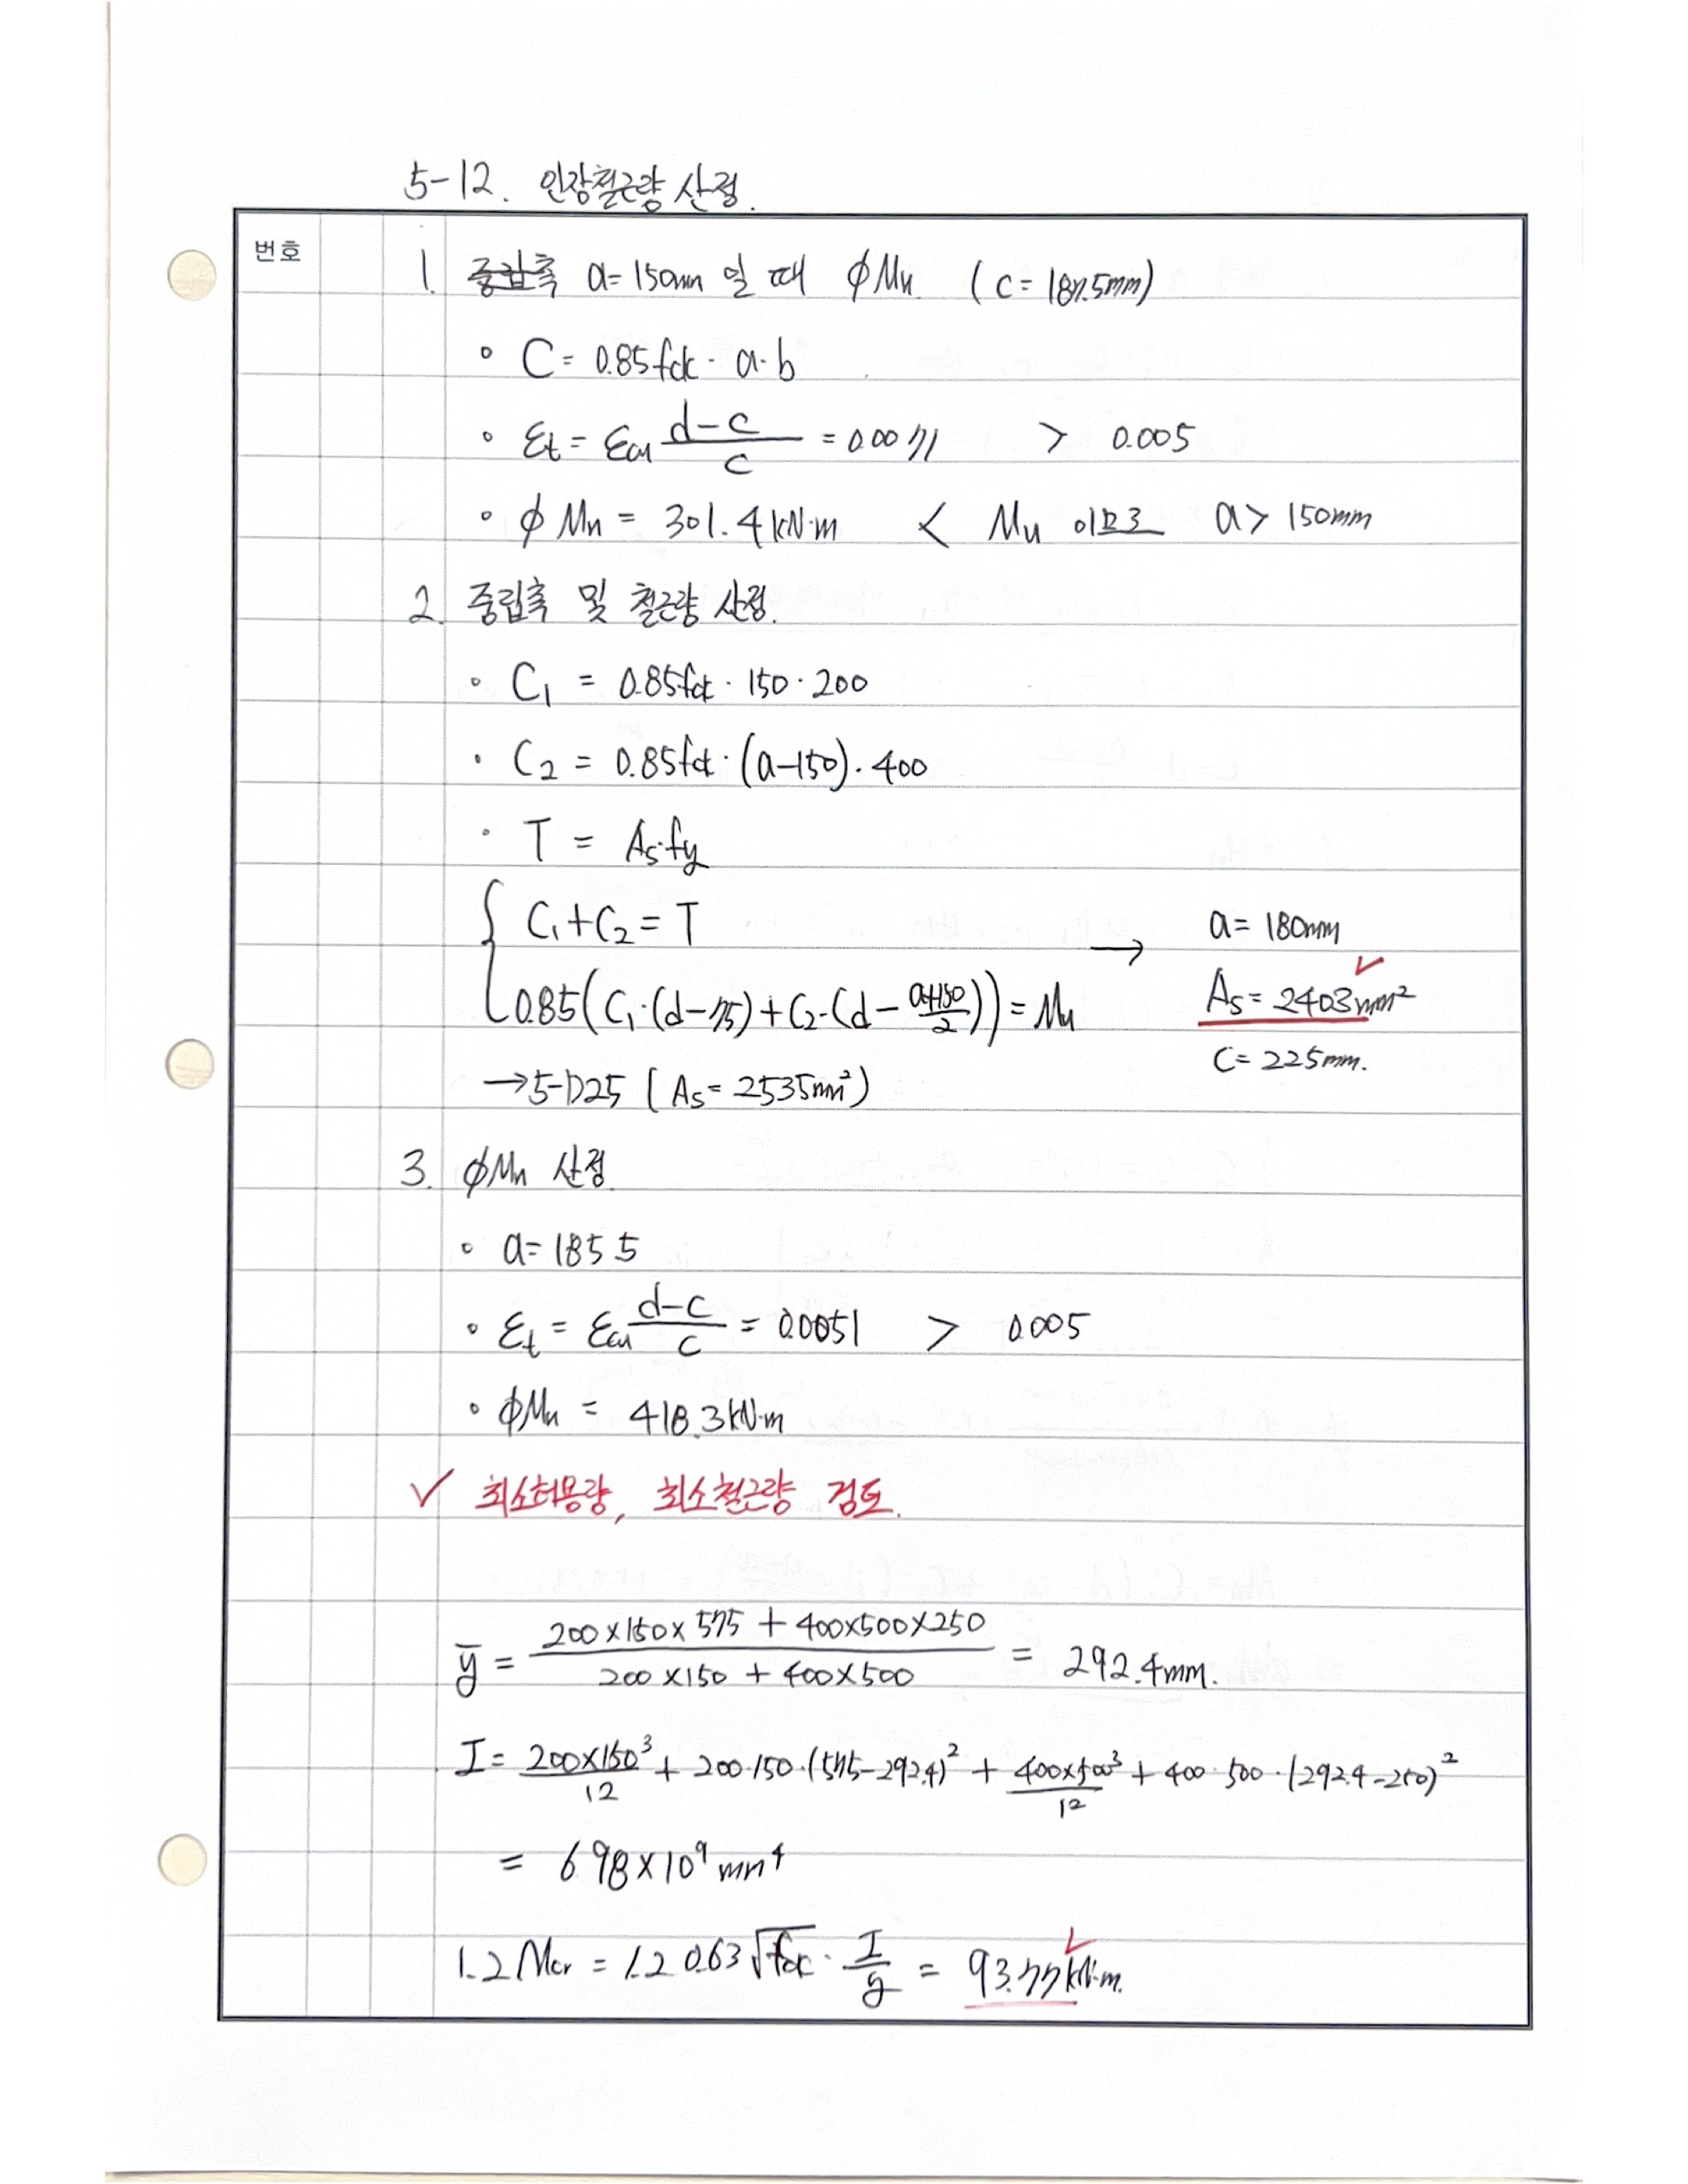 5-12. 인장철근량 산정.
번호
1. 중립축 a=150mm 일 때 ϕMn. (c=187.5mm)
∘ C= 0.85fck · a·b
∘ εt = εcu (d-c)/c = 0.0071 > 0.005
∘ ϕMn = 301.4kN·m < Mu 이므로 a> 150mm
2. 중립축 및 철근량 산정.
∘ C1 = 0.85fck · 150 · 200
· C2 = 0.85fck · (a-150) · 400
· T = As·fy
{ C1+C2 = T → a= 180mm
0.85(C1·(d-75)+C2·(d-(a+150)/2)) = Mu As= 2403mm²
→5-D25 (As= 2535mm²) c= 225mm.
3. ϕMn 산정
∘ a= 185.5
∘ εt = εcu (d-c)/c = 0.0051 > 0.005
∘ ϕMn = 418.3kN·m
✓ 최소허용량, 최소철근량 검토.
ȳ = (200×150×575 + 400×500×250)/(200×150 + 400×500) = 292.4mm.
I = 200×150³/12 + 200·150·(575-292.4)² + 400×500³/12 + 400·500·(292.4-250)²
= 6.98×10⁹ mm⁴
1.2Mcr = 1.2 0.63√fck · I/y = 93.77kN·m.